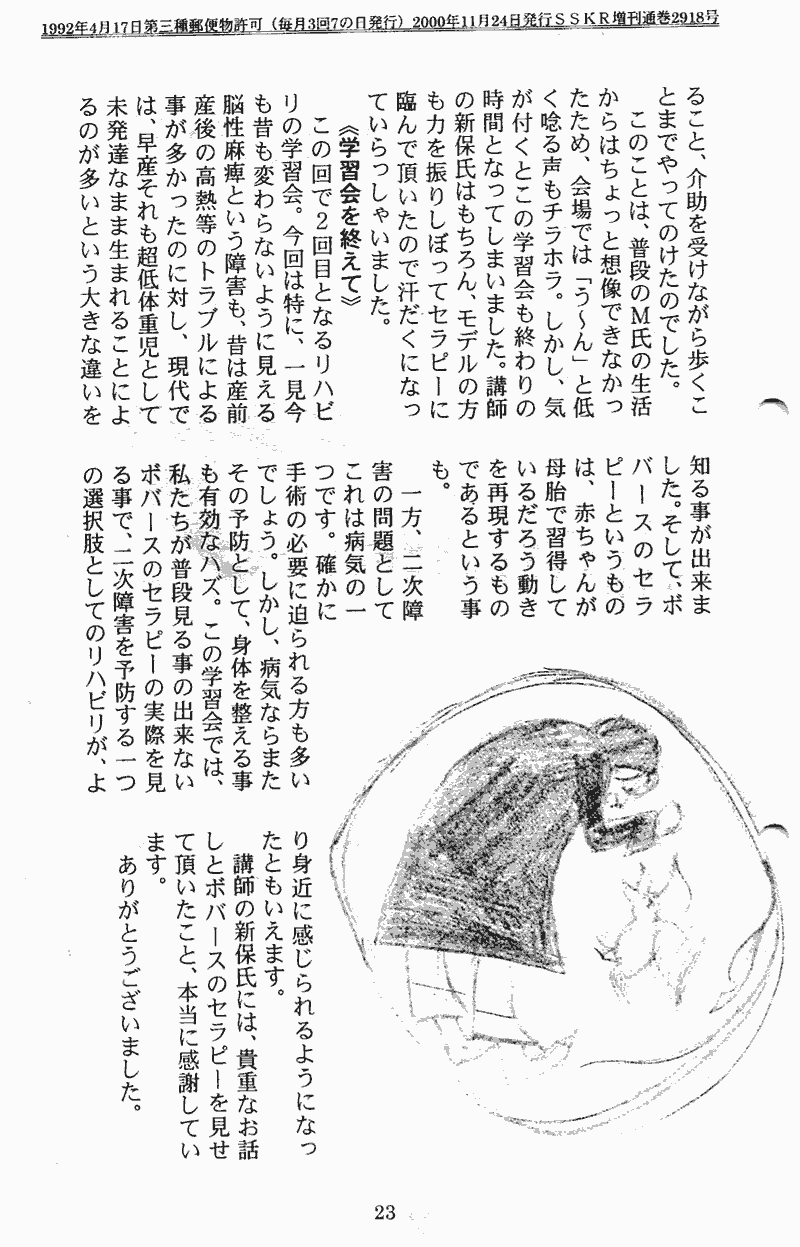 1992年4月17日第三種郵便物許可（毎月3回7の日発行）2000年11月24日発行ＳＳＫＲ増刊通巻2918号
ること、介助を受けながら歩くこ
とまでやってのけたのでした。
このことは、普段のＭ氏の生活
からはちょっと想像できなかっ
たため、会場では「う～ん」と低
く唸る声もチラホラ。しかし、気
が付くとこの学習会も終わりの
時間となってしまいました。講師
の新保氏はもちろん、モデルの方
も力を振りしぼってセラピーに
臨んで頂いたので汗だくになっ
ていらっしゃいました。
《学習会を終えて》
この回で２回目となるリハビ
リの学習会。今回は特に、一見今
も昔も変わらないように見える
脳性麻痺という障害も、昔は産前
産後の高熱等のトラブルによる
事が多かったのに対し、現代で
は、早産それも超低体重児として
未発達なまま生まれることによ
るのが多いという大きな違いを
知る事が出来ま
した。そして、ボ
バースのセラ
ピーというもの
は、赤ちゃんが
母胎で習得して
いるだろう動き
を再現するもの
であるという事
も。
一方、二次障
害の問題として
これは病気の一
つです。確かに
手術の必要に迫られる方も多い
でしょう。しかし、病気ならまた
その予防として、身体を整える事
も有効なハズ。この学習会では、
私たちが普段見る事の出来ない
ボバースのセラピーの実際を見
る事で、二次障害を予防する一つ
の選択肢としてのリハビリが、よ
り身近に感じられるようになっ
たともいえます。
講師の新保氏には、貴重なお話
しとボバースのセラピーを見せ
て頂いたこと、本当に感謝してい
ます。
ありがとうございました。
23